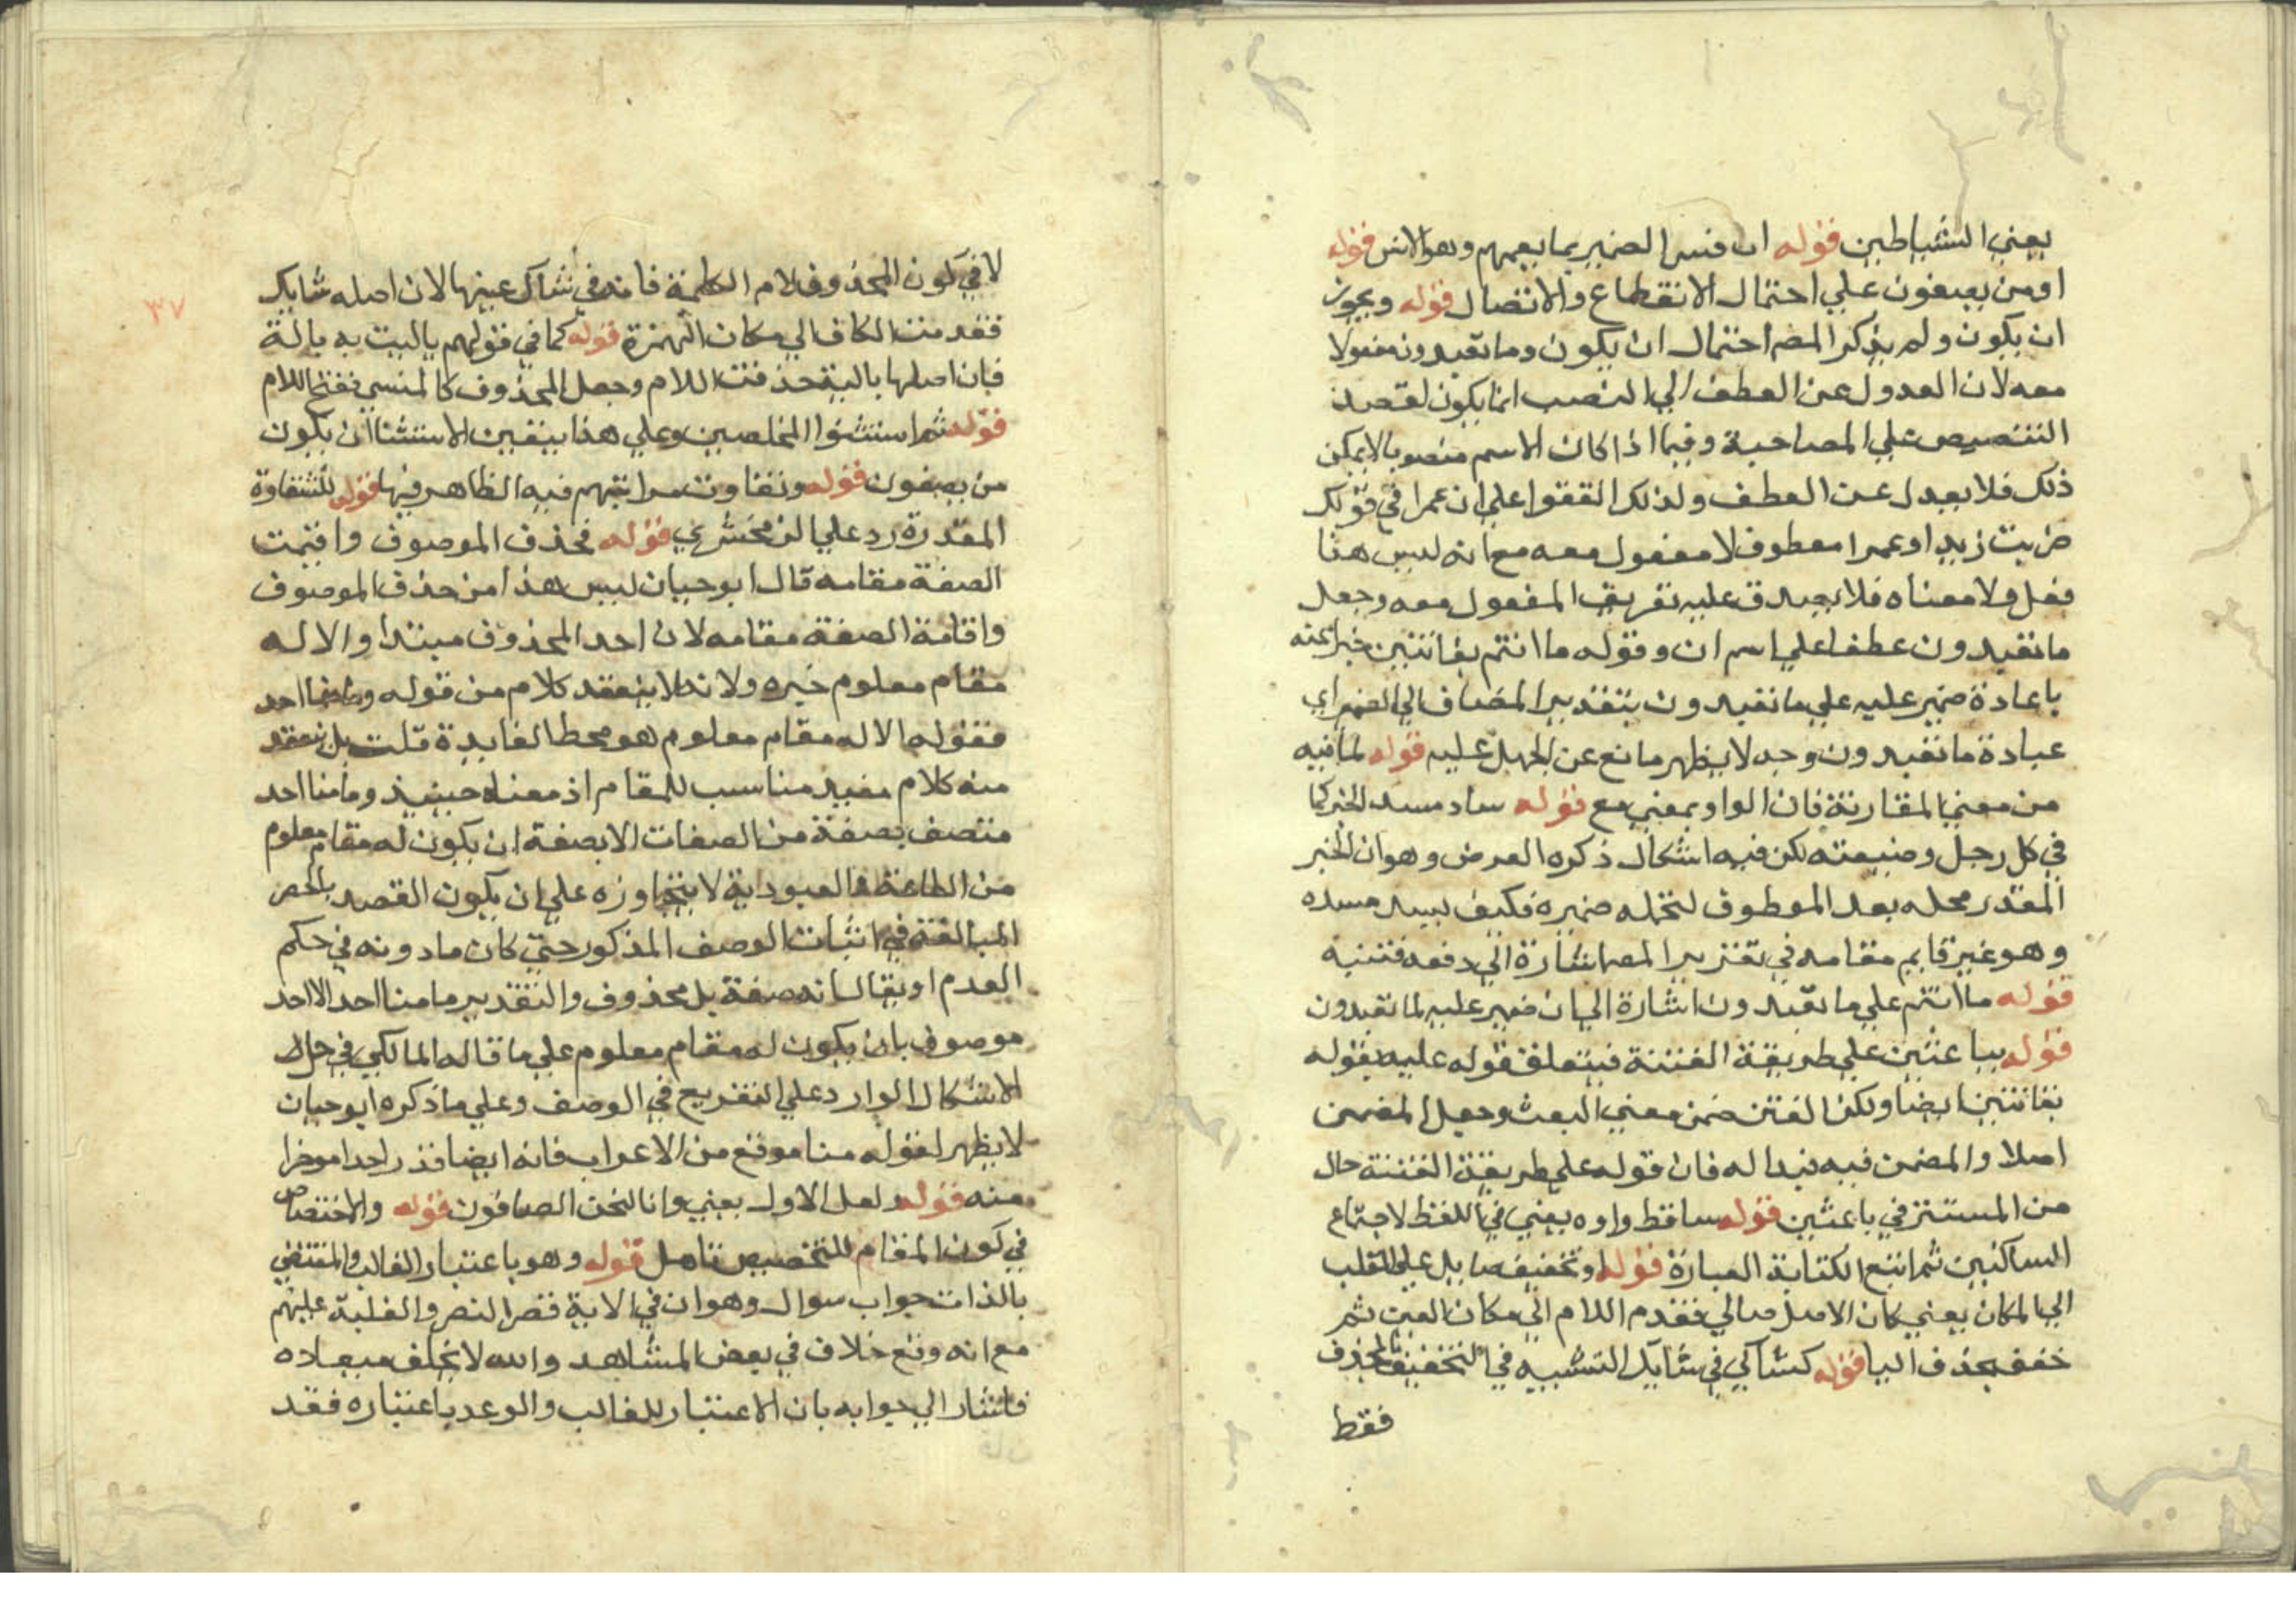 يعني الشياطين قوله ان فسر الضمير بما يعمهم وهو الانس قوله
او من يصفون علي احتمال الانقطاع والاتصال قوله ويجوز
ان يكون ولم يذكر المص احتمال ان يكون وما تعبدون مفعولا
معه لان العدول عن العطف الي النصب انما يكون لقصد
التنصيص علي المصاحبة وفيما اذا كان الاسم منصوبا لا يمكن
ذلك فلا يعدل عن العطف ولذلك اتفقوا علي ان عمرا في قولك
ضربت زيدا وعمرا معطوف لا مفعول معه مع انه ليس هنا
فعل ولا معناه فلا يصدق عليه تعريف المفعول معه وجعل
ما تعبدون عطفا علي اسم ان وقوله ما انتم بفاتنين خبرا عنه
باعادة ضمير عليه علي ما تعبدون بتقدير المضاف الي الضمير اي
عبادة ما تعبدون وجه لا يظهر مانع عن الحمل عليه قوله لما فيه
من معني المقارنة فان الواو بمعني مع قوله ساد مسد الخبر كما
في كل رجل وضيعته لكن فيه اشكال ذكره الرضي وهو ان الخبر
المقدر محله بعد المعطوف لتحمله ضميره فكيف ليسد مسده
وهو غير قايم مقامه في تقرير المص اشارة الي دفعه فتنبه
قوله ما انتم علي ما تعبدون اشارة الي ان ضمير عليه لما تعبدون
قوله بباعثين علي طريقة الفتنة فيتعلق قوله عليه بقوله
بفاتنين ايضا ولكن الفتن ضمن معني البعث وجعل المضمن
اصلا والمضمن فيه قيدا له فان قوله علي طريقة الفتنة حال
من المستتر في باعثين قوله ساقط واوه يعني في اللفظ لاجتماع
الساكنين ثم اتبع الكتابة العبارة قوله او تخفيف صايل علي القلب
الي المكان يعني كان الاصل صالي فقدم اللام الي مكان العين ثم
خفف بحذف اليا قوله كشاكي في شايك التشبيه في التخفيف بالحذف
فقط
٣٧
لا في كون المحذوف لام الكلمة فانه في شاك عينها لان اصله شايك
فقدمت الكاف الي مكان الهمزة قوله كما في قولهم باليت به بالة
فان اصلها بالية حذفت اللام وجعل المحذوف كالمنسي ففتح اللام
قوله ثم استثنوا المخلصين وعلي هذا يتعين الاستثنا ان يكون
من يصفون قوله وتفاوت مراتبهم فيه الظاهر فيها قوله للشقاوة
المقدرة رد علي الزمخشري قوله فحذف الموصوف واقيمت
الصفة مقامه قال ابو حيان ليس هذا من حذف الموصوف
واقامة الصفة مقامه لان احد المحذوف مبتدا والا له
مقام معلوم خبره ولانه لا ينعقد كلام من قوله وما منا احد
فقوله الا له مقام معلوم هو محط الفايدة قلت بل ينعقد
منه كلام مفيد مناسب للمقام اذ معناه حينيذ وما منا احد
متصف بصفة من الصفات الا بصفة ان يكون له مقام معلوم
من الطاعة والعبودية لا يتجاوزه علي ان يكون القصد بالحصر
المبالغة في اثبات الوصف المذكور حتي كان ما دونه في حكم
العدم او يقال انه صفة بل محذوف والتقدير ما منا احد الا احد
موصوف بان يكون له مقام معلوم علي ما قاله المالكي في حل
الاشكال الوارد علي التفريع في الوصف وعلي ما ذكره ابو حيان
لا يظهر لقوله منا موقع من الاعراب فانه ايضا قدر احدا موخرا
عنه قوله ولعل الاول يعني وانا لنحن الصافون قوله والاختصاص
في كون المقام للتخصيص تامل قوله وهو باعتبار الغالب والمقتضي
بالذات جواب سوال وهو ان في الاية قصر النصر والغلبة عليهم
مع انه وقع خلاف في بعض المشاهد والله لا يخلف ميعاده
فاشار الي جوابه بان الاعتبار للغالب والوعد باعتباره فقد